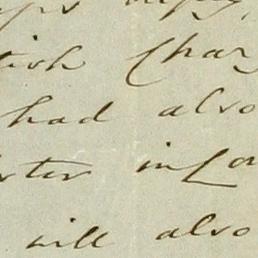 tish Char
had also
ster in Lo
will also